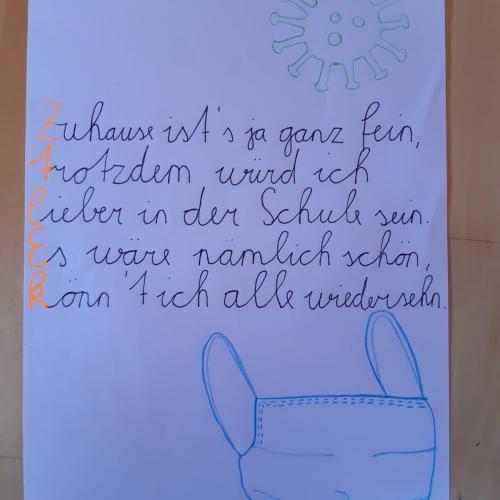 Zuhause ist's ja ganz fein,
Trotzdem würd ich
Lieber in der Schule sein.
Es wäre nämlich schön,
Könn't ich alle wiedersehn.